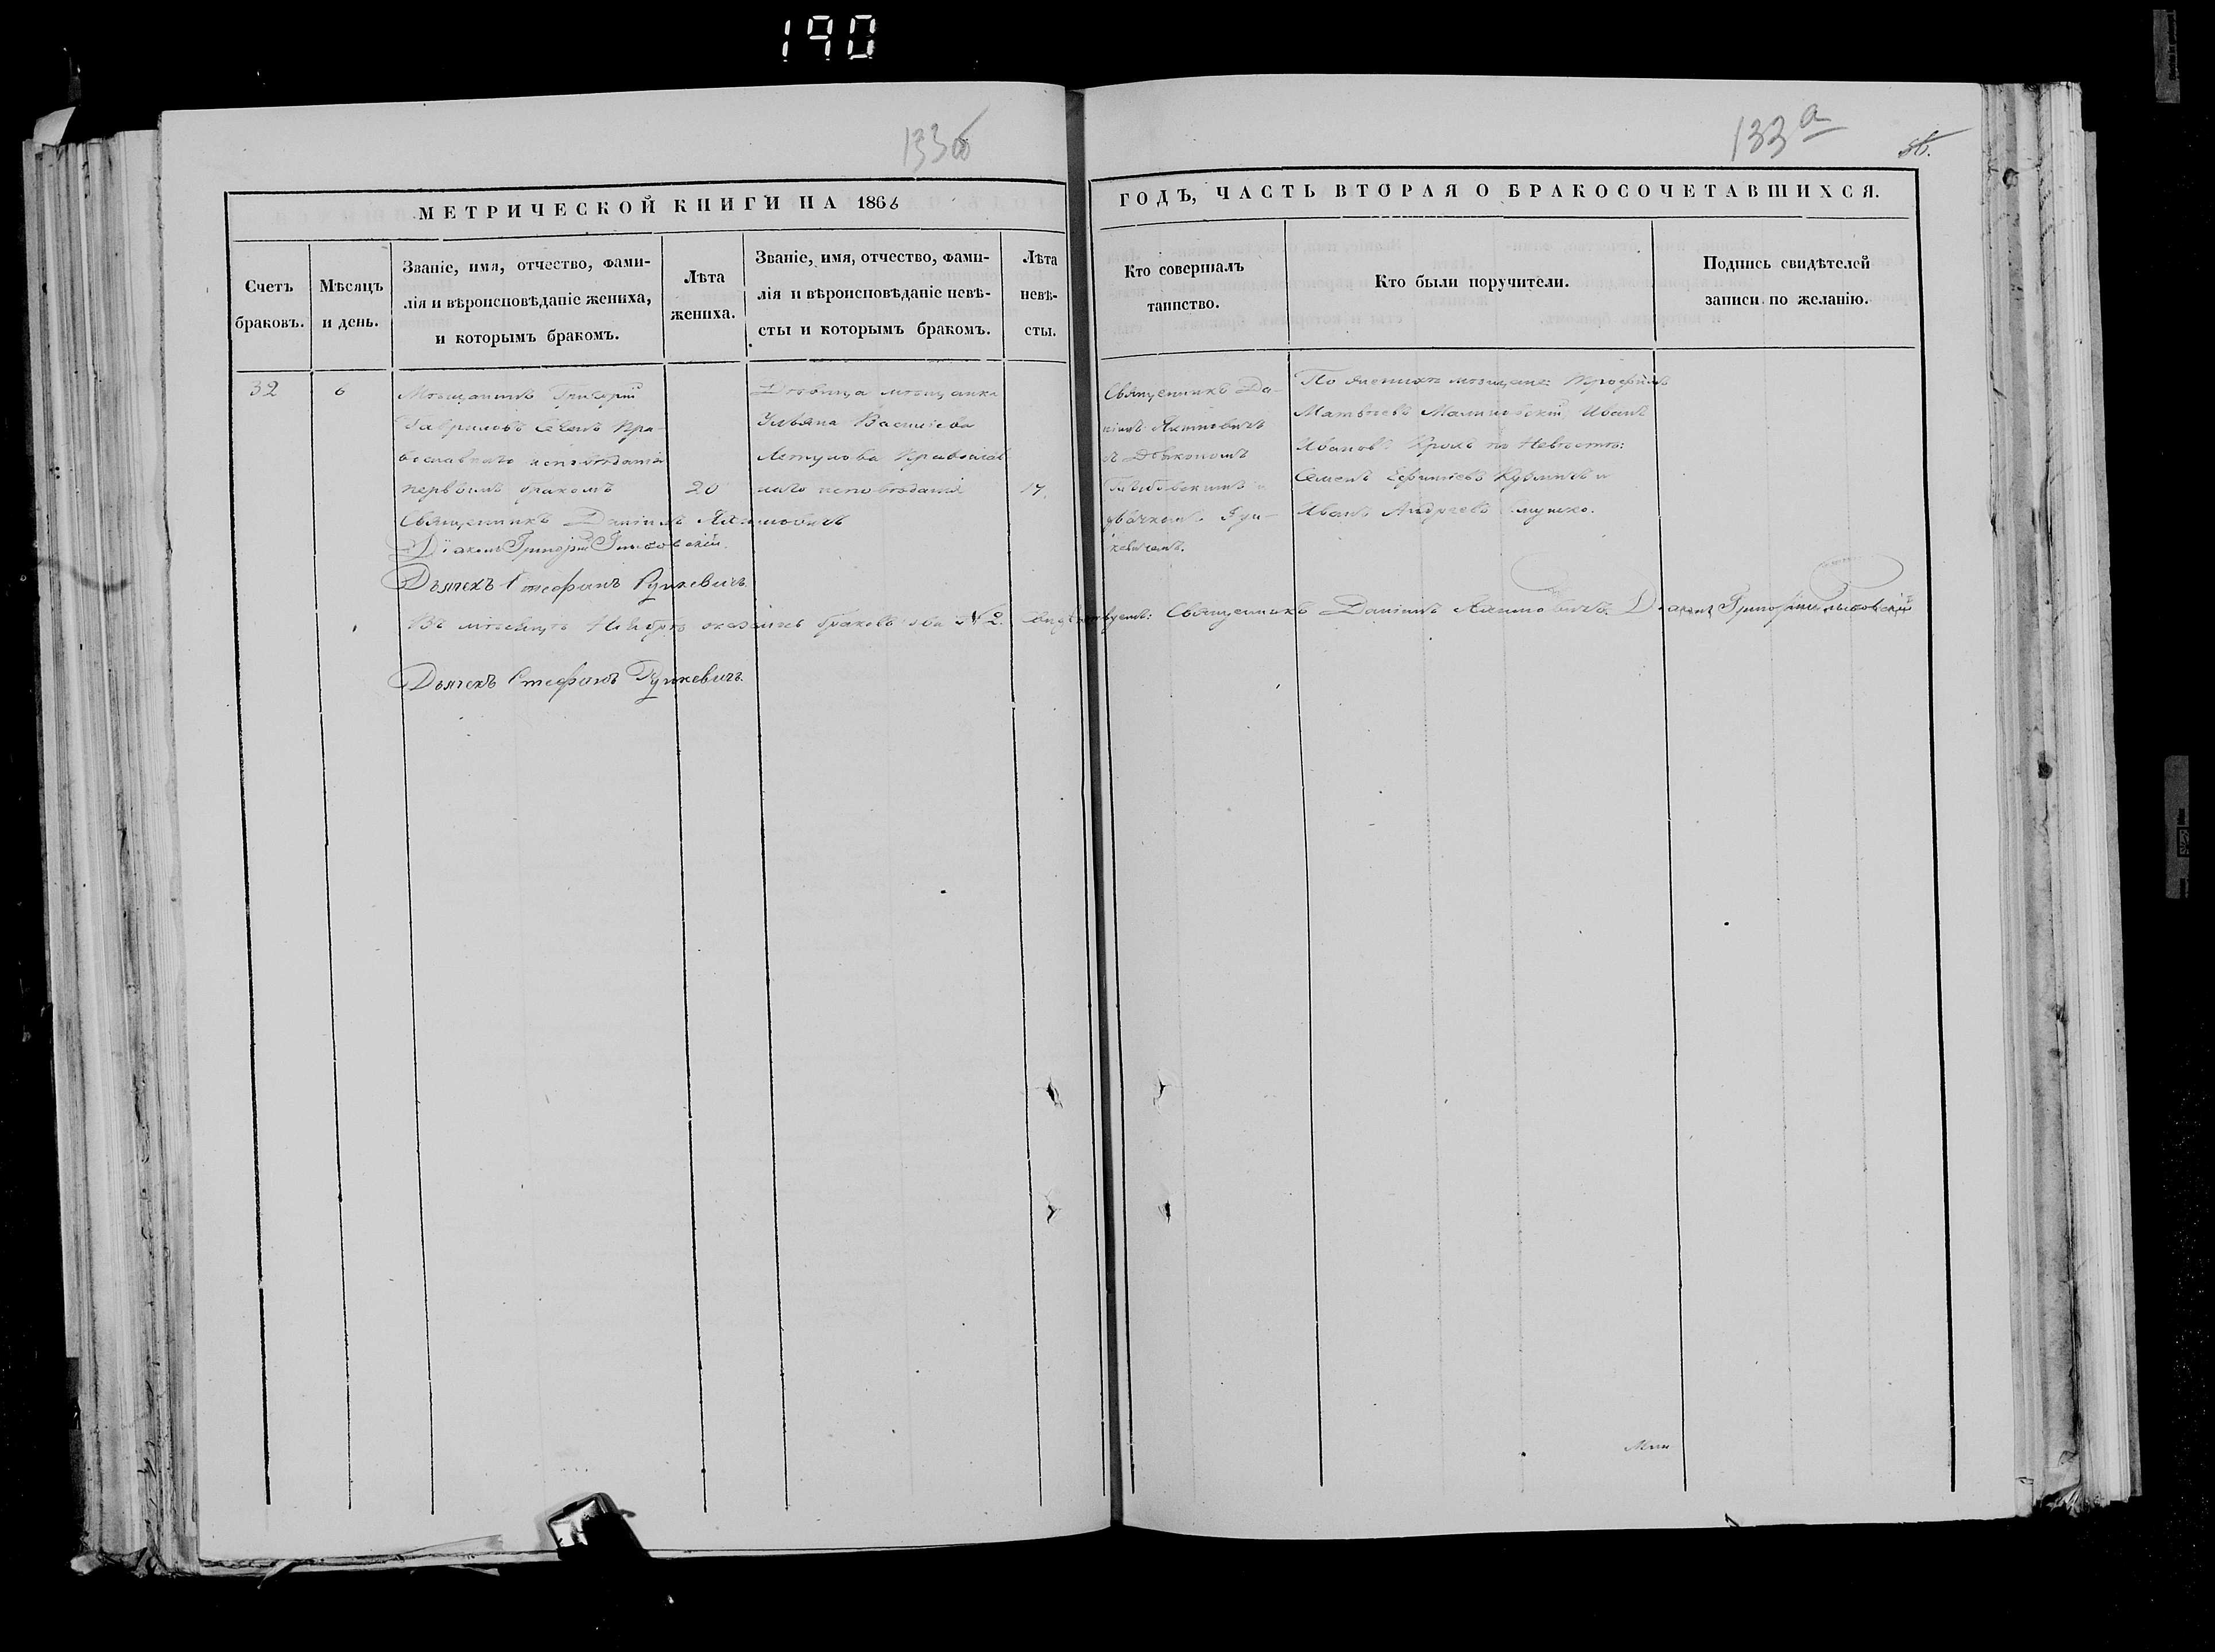 190
133б
133а
МЕТРИЧЕСКОЙ КНИГИ НА 1866
ГОДЪ, ЧАСТЬ ВТОРАЯ О БРАКОСОЧЕТАВШИХСЯ.
Счетъ
браковъ.
Мѣсяцъ
и день.
Званіе, имя, отчество, фами-
лія и вѣроисповѣданіе жениха,
и которымъ бракомъ.
Лѣта
жениха.
Званіе, имя, отчество, фами-
лія и вѣроисповѣданіе невѣ-
сты и которымъ бракомъ.
Лѣта
невѣ-
сты.
Кто совершалъ
таинство.
Кто были поручители.
Подпись свидѣтелей
записи по желанію.
32
6
Мѣщанинъ Григорій
Гавриловъ Пра-
вославнаго исповѣданія
первымъ бракомъ
20
Дѣвица мѣщанка
Ульяна Василіева
Православ
наго исповѣданія
17.
Священникъ Да-
ніилъ Якимовичъ
съ Діакономъ
и
дьячкомъ Руц-
кевичемъ.
По женихѣ мѣщане: Трофимъ
Матвѣевъ Малиновскій, Иванъ
Ивановъ Кроль по Невѣстѣ:
Семенъ Ефимовъ и
Иванъ Андреевъ
Священникъ Даніилъ Якимовичъ
Діаконъ Григорій
Дьячекъ Стефанъ Руцкевичъ.
Въ мѣсяцѣ Ноябрѣ браковъ два № 2. Священникъ Даніилъ Якимовичъ. Діаконъ Григорій
Дьячекъ Стефанъ Руцкевичъ.